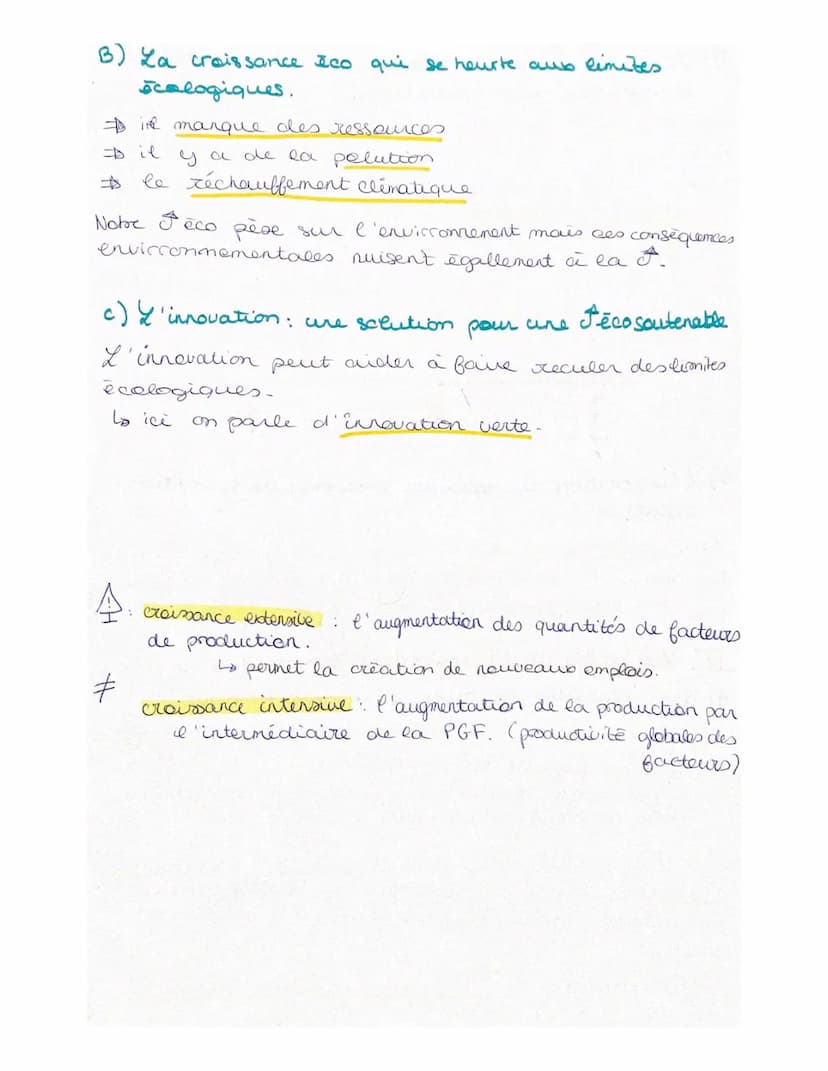 B) La croissance éco qui se heurte aux limites
écologiques.
⇒ il manque des ressources
⇒ il y a de la polution
⇒ le réchauffement climatique
Notre ↑ éco pèse sur l'envirronnement mais ces conséquences
envirronnementales nuisent égallement à la ↑.
c) L'innovation : une solution pour une ↑ éco soutenable
L'innovation peut aider à faire reculer des limites
écologiques.
↳ ici on parle d'innovation verte.
⚠ : croissance extensive : l'augmentation des quantités de facteurs
de production.
↳ permet la création de nouveaux emplois.
≠
croissance intensive : l'augmentation de la production par
l'intermédiaire de la PGF. (productivité globales des
facteurs)